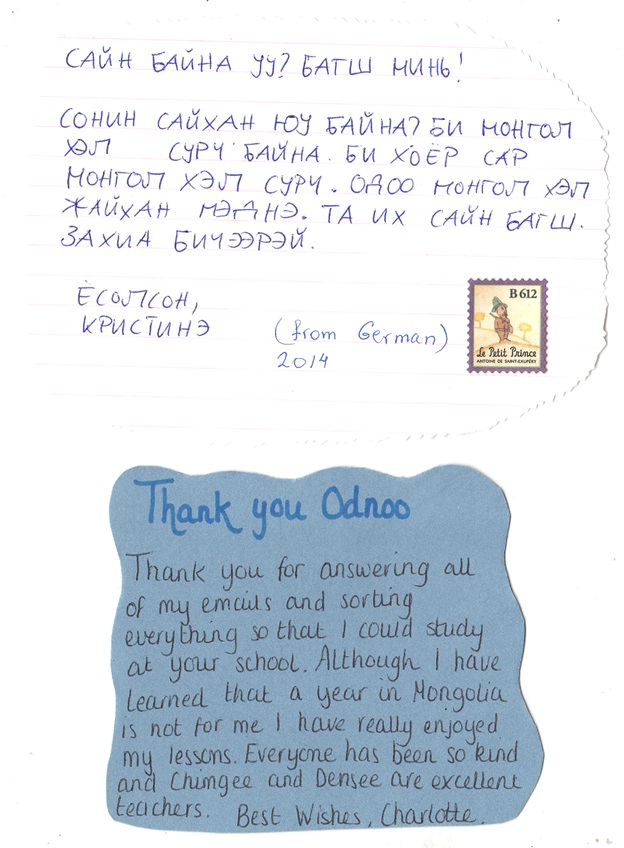 САЙН БАЙНА УУ? БАГШ МИНЬ!
СОНИН САЙХАН ЮУ БАЙНА? БИ МОНГОЛ
ХЭЛ СУРЧ БАЙНА. БИ ХОЁР САР
МОНГОЛ ХЭЛ СУРЧ. ОДОО МОНГОЛ ХЭЛ
ЖАЙХАН МЭДНЭ. ТА ИХ САЙН БАГШ.
ЗАХИА БИЧЭЭРЭЙ.
ЁСОЛСОН,
КРИСТИНЭ
(from German)
2014
B 612
Le Petit Prince
ANTOINE DE SAINT-EXUPÉRY
Thank you Odnoo
Thank you for answering all
of my emails and sorting
everything so that I could study
at your school. Although I have
learned that a year in Mongolia
is not for me I have really enjoyed
my lessons. Everyone has been so kind
and Chimgee and Densee are excellent
teachers. Best Wishes, Charlotte.